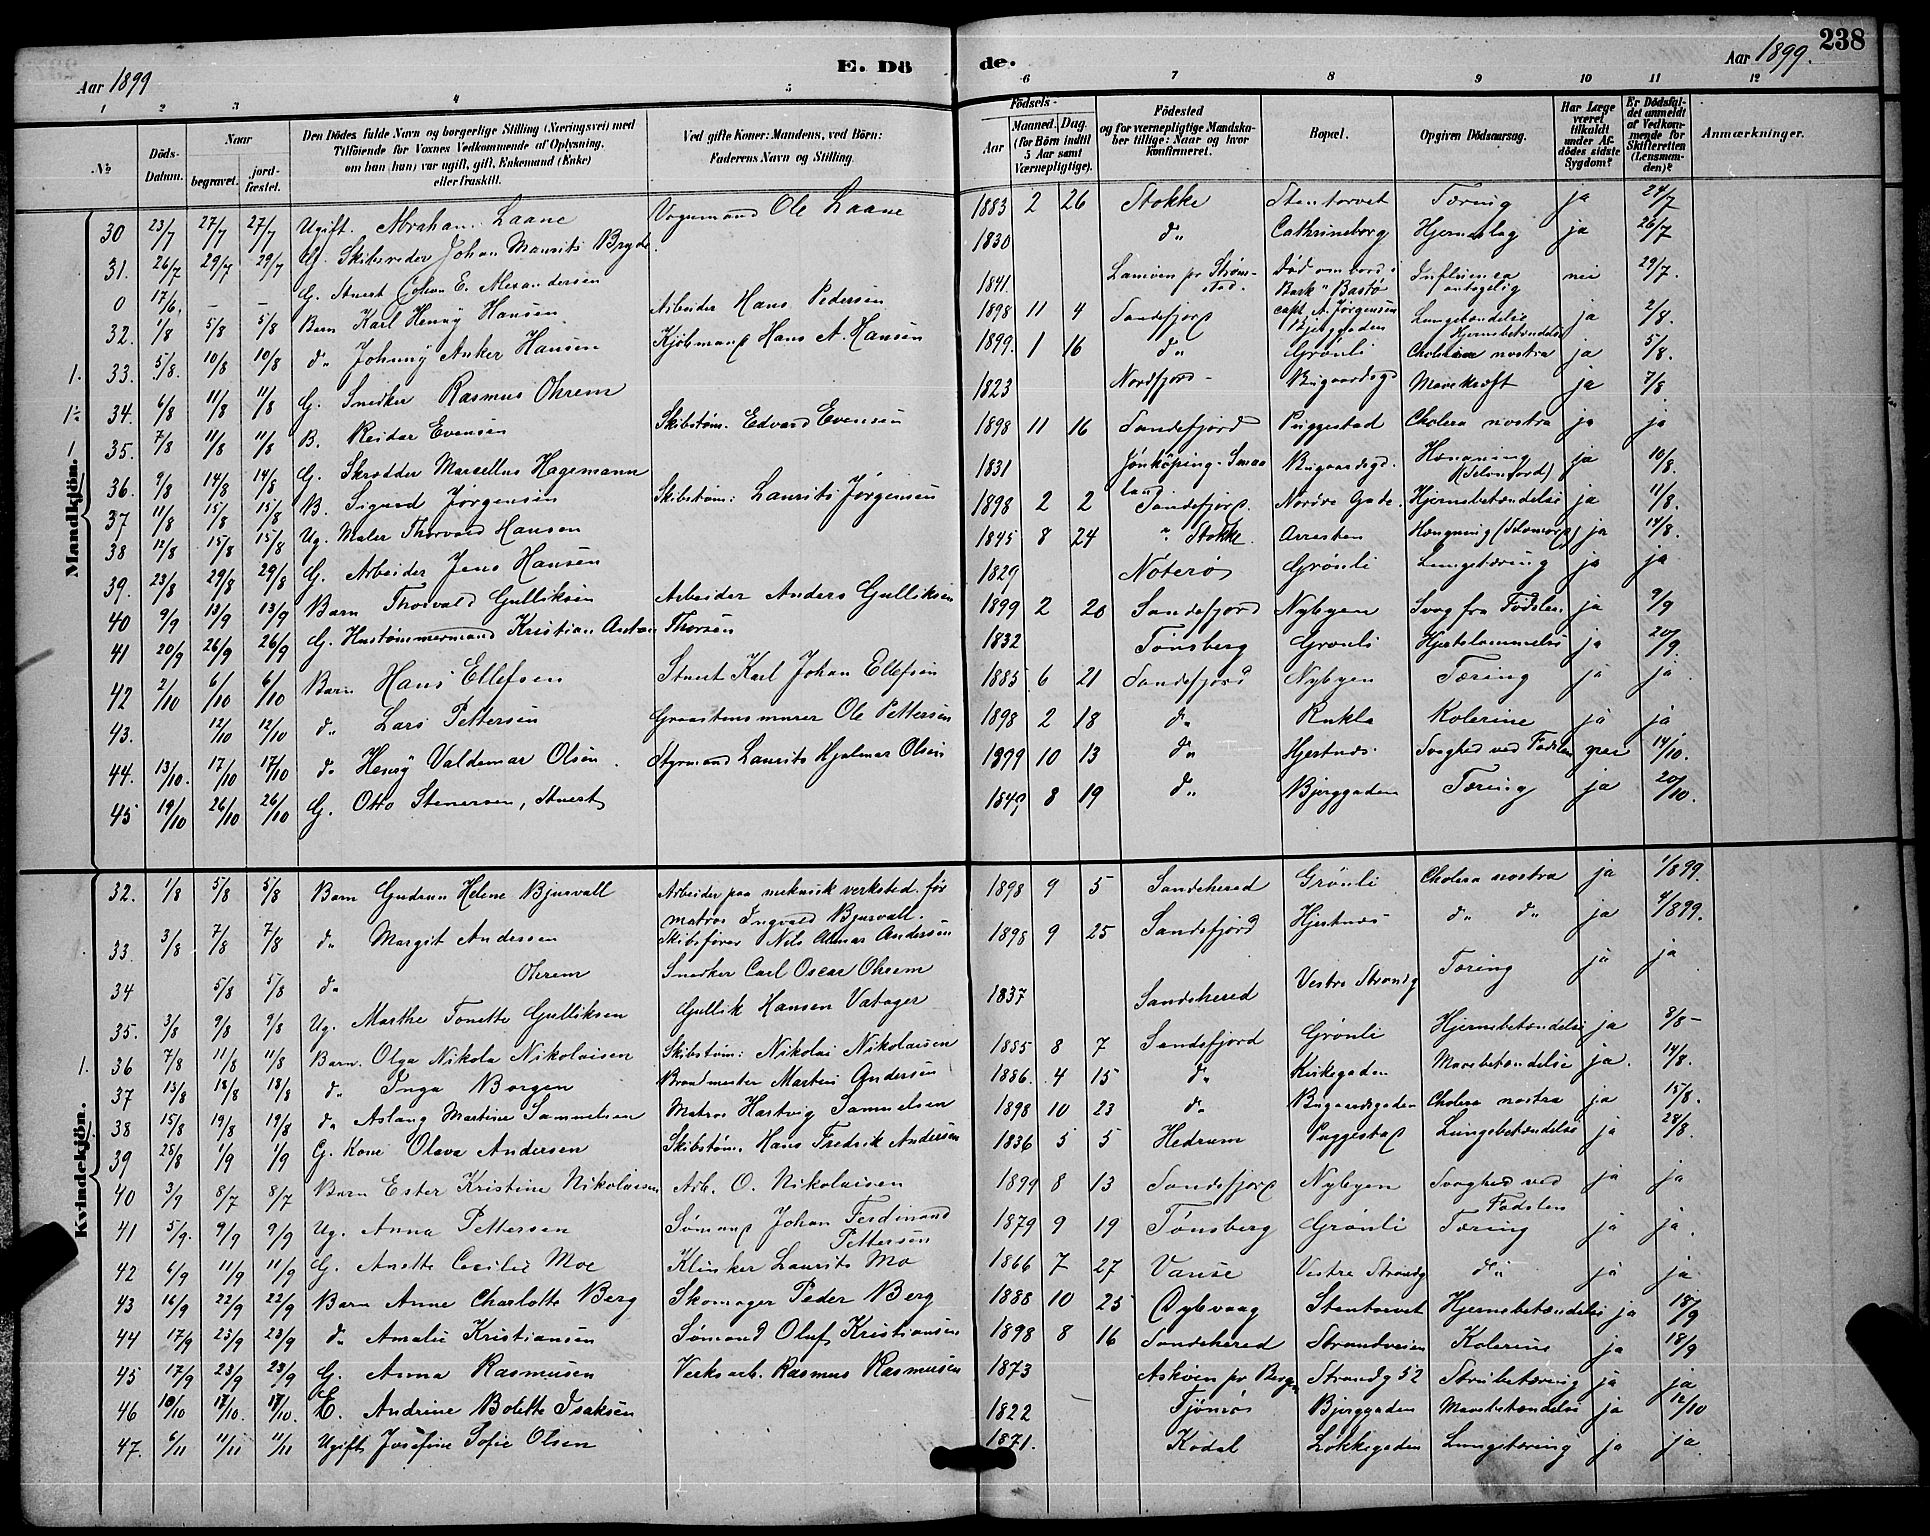 238
Aar 1899
E. Dö
de.
Aar 1899.
1 2 3 4 5 6 7 8 9 10 11 12
№ Döds-Datum. Naar begravet. jord-fæstet. Den Dödes fulde Navn og borgerlige Stilling (Næringsvei) med Tilföiende for Voxnes Vedkommende af Oplysning, om han (hun) var ugift, gift, Enkemand (Enke) eller fraskilt. Ved gifte Koner: Mandens, ved Börn: Faderens Navn og Stilling. Födsels- Aar Maaned. Dag. (for Börn indtil 5 Aar samt Værnepligtige). Födested og for værnepligtige Mandska-ber tillige: Naar og hvor konfirmeret. Bopæl. Opgiven Dödsaarsag. Har Læge været tilkaldt under Af-dödes sidste Sygdom? Er Dödsfal-det anmeldt af Vedkom-mende for Skifteretten (Lensman-den)? Anmærkninger.
Mandkjön.
30 23/7 27/7 27/7 Ugift. Abraham Laane Vognmand Ole Laane 1883 2 26 Stokke Stentorvet Tæring ja 24/7
31. 26/7 29/7 29/7 G. Skibsreder Johan Maurits Bryde 1830 do Cathrineborg Hjerneslag ja 26/7
0 17/6. – – G. Stuert Johan E. Alexandersen 1841. Lamöen pr Ström-stad. Död ombord i Bark "Bastø" capt A. Jørgensen Influensa antagelig nei 29/7.
32. 1/8 5/8 5/8 Barn Karl Henry Hansen Arbeider Hans Pedersen 1898 11 4 Sandefjord Bjerggaden Lungebetændelse Hjernebetændelse ja 2/8.
1. 33. 5/8. 10/8 10/8 do Johnny Anker Hansen Kjöbmand Hans A. Hansen 1899. 1 16 do Grönli Cholerine nostra ja 5/8.
34. 6/8 11/8 11/8 G. Snedker Rasmus Ohrem 1823 Nordfjord- Bugaardsgd Mavekræft ja 7/8
1 35. 7/8 11/8 11/8 B. Reidar Evensen Skibstøm. Edvard Evensen 1898 11 16 Sandefjord Puggestad Cholera nostra ja ja
36. 9/8 14/8 14/8 G. Skrædder Marcellus Hagemann 1831 Jönköping. Smaaland Bugaardsgd. Hængning (Selvmord) ja 10/8.
37 11/8 15/8 15/8 B. Sigurd Jørgensen Skibstøm: Laurits Jørgensen 1898 2 2 Sandefjord. Nordre Gade. Hjernebetændelse ja 11/8.
38 12/8 15/8 15/8 Ug. Maler Thorvald Hansen 1845 8 24 " Stokke. Arresten Hængning (Selvmord) ja 14/8.
39. 23/8 29/8 29/8 G. Arbeider Jens Hansen 1829 Nøterø Grönli Lungetæring ja ja
40 9/9 13/9 13/9 Barn Thorvald Gulliksen Arbeider Anders Gulliksen 1899 2 20 Sandefjord Nybyen Svag fra Födslen ja 9/9
41 20/9 26/9 26/9 G. Hustømmermand Kristian Anton Thorsen 1832 Tønsberg Grönli Hjertelammelse ja 20/9.
42 2/10 6/10 6/10 Barn Hans Ellefsen Stuert Karl Johan Ellefsen 1885 6 21 Sandefjord Nybyen Tæring ja ja
43. 12/10 12/10 do Lars Pettersen Graastensmurer Ole Pettersen 1898 2 18 do Rukla Kolerine ja ja
44. 13/10. 17/10 17/10 do Henry Valdemar Olsen. Styrmand Laurits Hjalmar Olsen 1899 10 13 do Hjertnes. Svaghed ved Fødslen nei 14/10.
45 19/10 26/10 26/10 G. Otto Stenersen, Stuert 1840 8 19 do Bjerggaden Tæring ja 20/10.
Kvindekjön.
32. 1/8 5/8 5/8 Barn Gudrun Helene Bjusvall Arbeider paa meknisk verksted. för matros Ingvald Bjusvall. 1898 9 5 Sandeherred Grönli Cholera nostra ja 1/899.
33 3/8 7/8 7/8 do Margit Andersen Skibsfører Nils Almar Andersen 1898 9 25 Sandefjord Hjertnes- do do ja 4/899.
34 5/8 5/8 do Ohrem Snedker Carl Oscar Ohrem
35. 3/8 9/8 9/8 Ug. Marthe Tonette Gulliksen Gullik Hansen Vatager 1837 Sandeherred Vestre Strandg Tæring ja ja
1. 36 7/8 11/8 11/8 Barn. Olga Nikola Nikolaisen Skibstøm: Nikolai Nikolaisen 1885 8 7 Sandefjord Grönli Hjernebetændelse ja 8/8-
37 13/8 18/8 18/8 do Inga Borgen Brandmester Martin Andersen 1886. 4 15 do Kirkegaden Mavebetændelse ja. 14/8.
38 15/8 19/8 19/8 do Aslaug Martine Samuelsen Matros Hartvig Samuelsen 1898 10 23 do Bugaardsgaden Cholera nostra ja 15/8.
39 25/8 1/9 1/9 G. Kone Olava Andersen Skibstøm. Hans Fredrik Andersen 1836 5 5 Hedrum Puggestad Lungebetændelse ja 28/8.
40 3/9 8/7 8/7 Barn Ester Kristine Nikolaisen Arb. O. Nikolaisen 1899 8 13 Sandefjord Nybyen Svaghed ved Fødslen ja ja
41 5/9. 9/9 9/9 Ug. Anna Pettersen Sømand Johan Ferdinand Pettersen 1879 9 19 Tønsberg Grönli Tæring ja ja.
42 6/9 11/9 11/9 G. Anette Cecilie Moe Klinker Laurits Mo 1866 7 27 Vanse Vestre Strandg do ja ja
43 16/9 22/9 22/9 Barn Anne Charlotte Berg Skomager Peder Berg 1888 10 25 Dybvaag Stentorvet Hjernebetændelse ja 18/9
44 17/9 23/9 23/9 do Amalie Kristiansen Sømand Oluf Kristiansen 1898 8 16 Sandeherred Strandveien Kolerine ja 18/9
45 17/9 23/9 23/9 G. Anna Rasmusen Verksarb. Rasmus Rasmusen 1873 Askøen pr Bergn Strandg 52 Strubetæring ja ja
46 10/10 17/10. 17/10. E. Andrine Bolette Isaksen 1822 Tjömøe Bjerggaden Mavebetændelse ja 12/10
47. 6/11 11/11 11/11 Ugift Josefine Sofie Olsen 1871. Kodal Løkkegaden Lungetæring ja ja